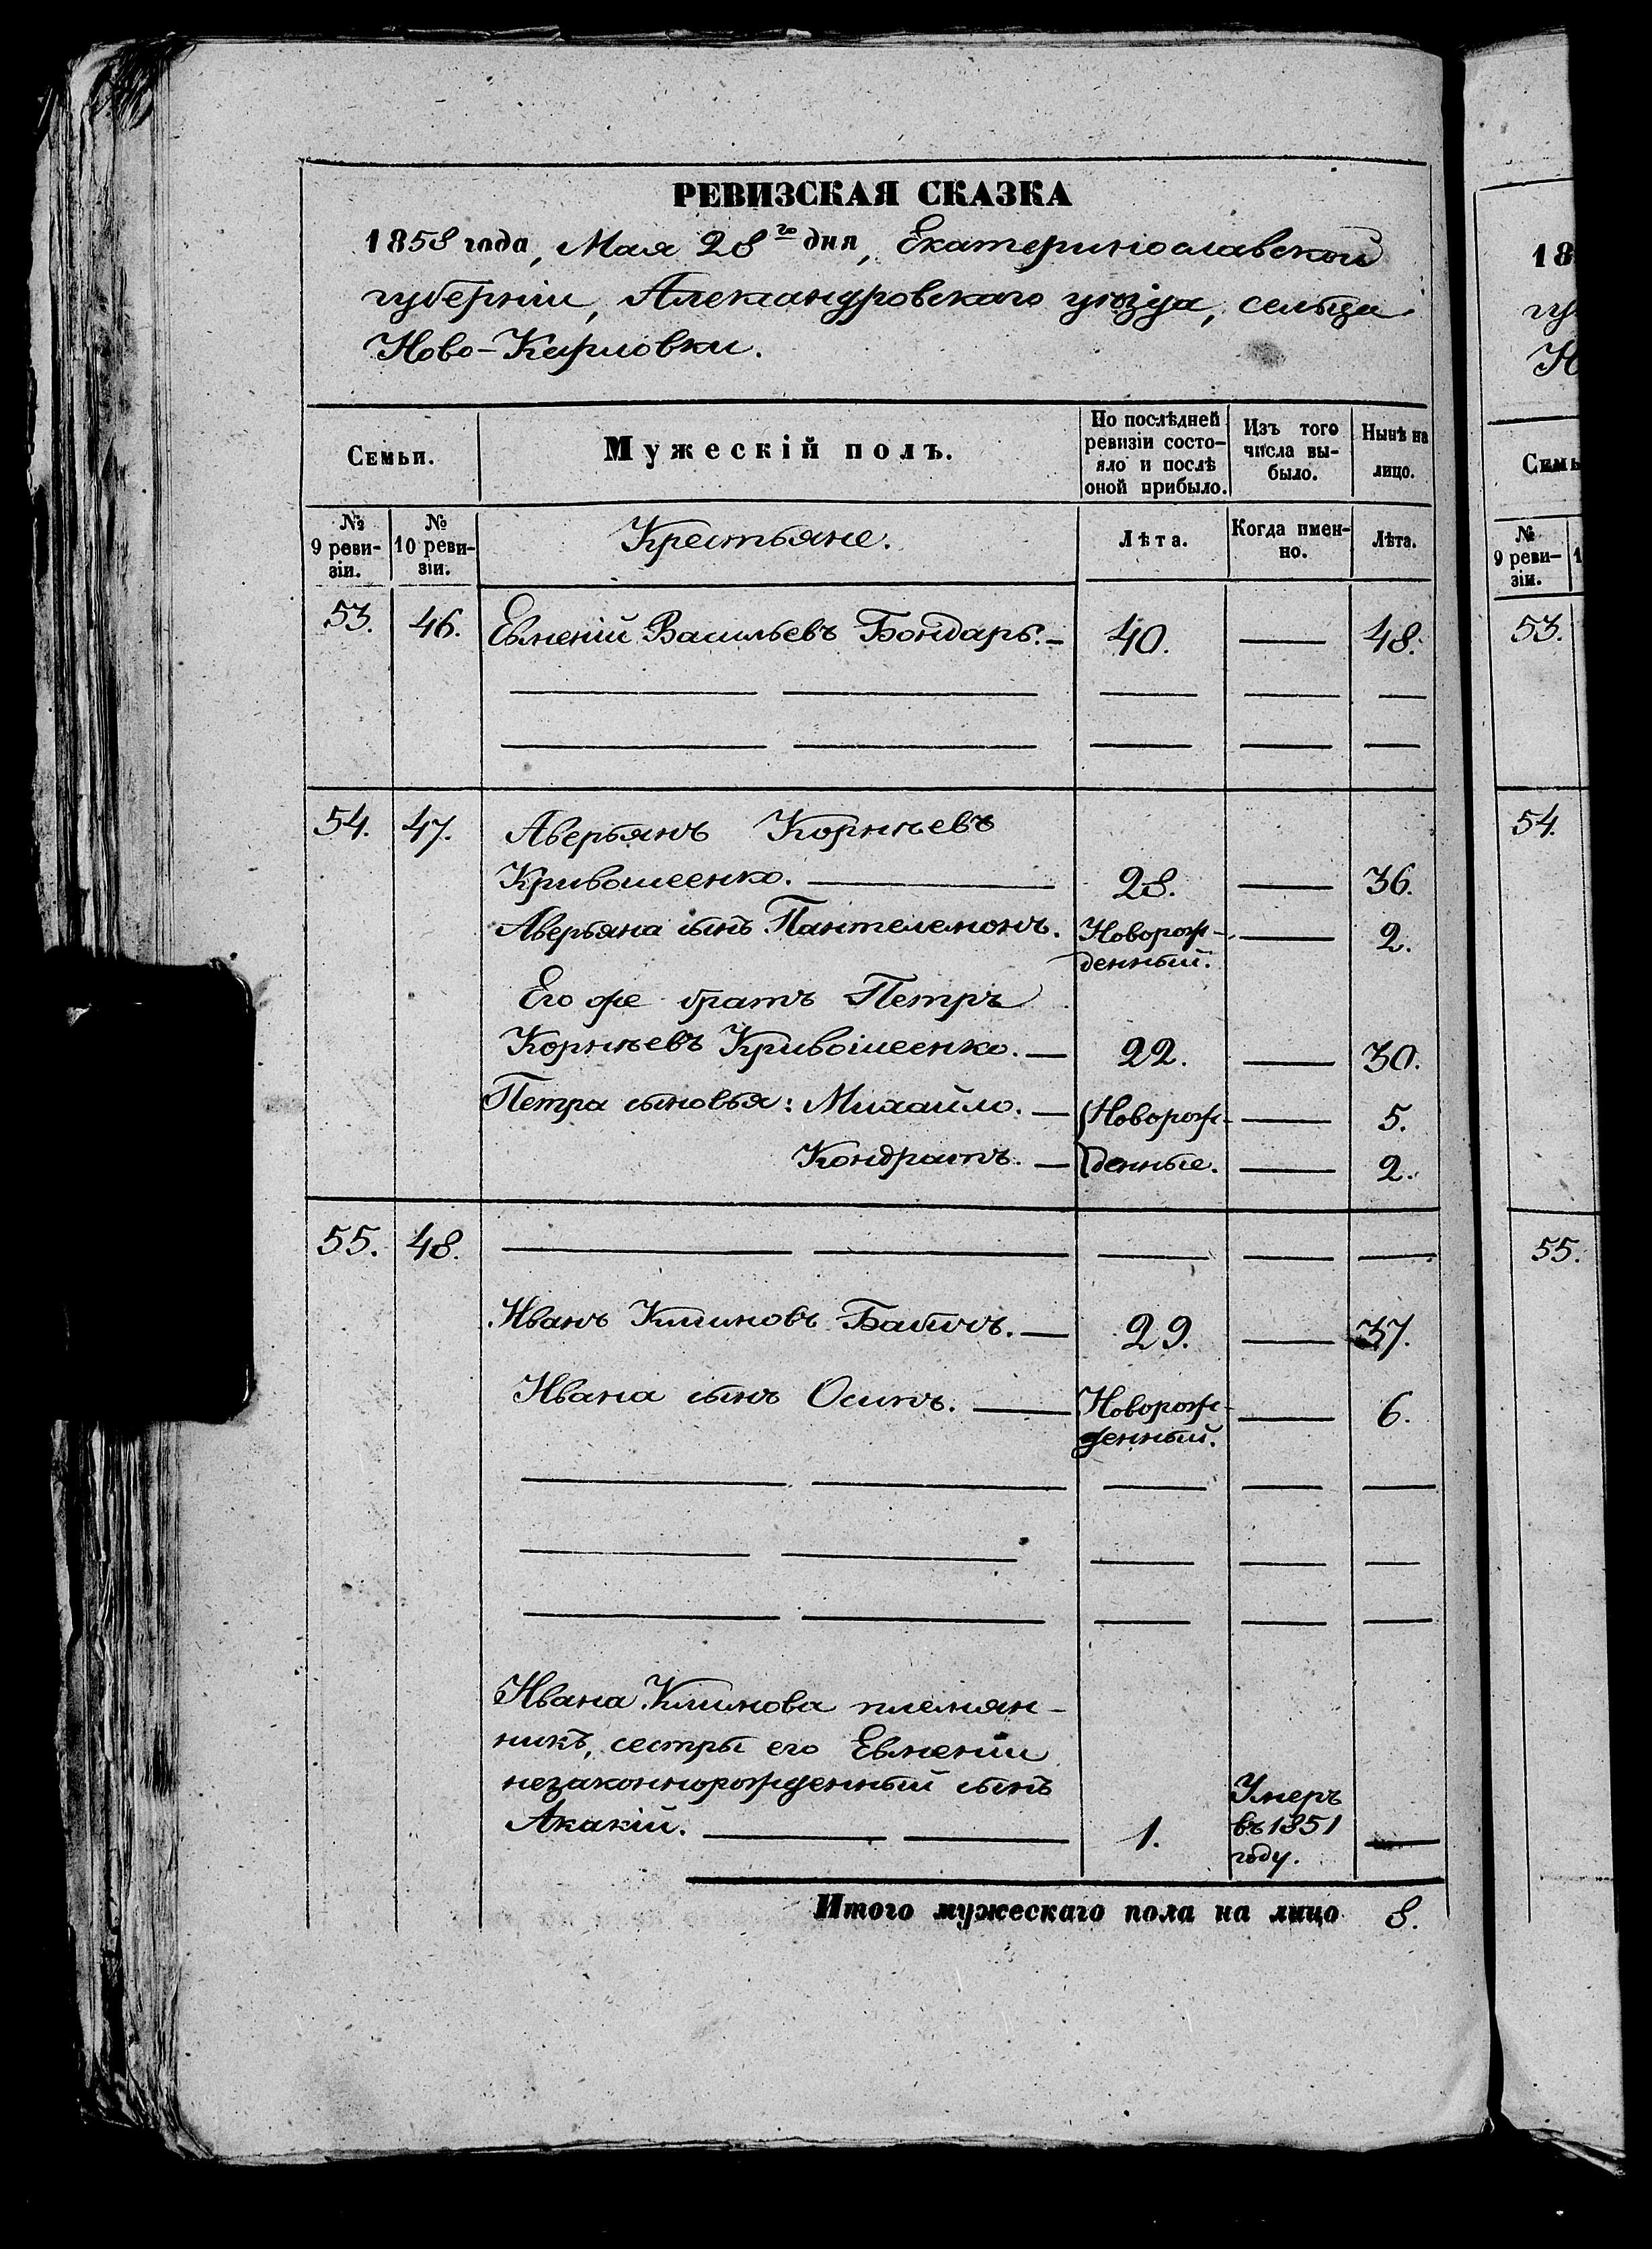 РЕВИЗСКАЯ СКАЗКА
1858 года, Мая 28го дня, Екатеринославской
губерніи, Александровскаго уѣзда, сельца
Ново-Карловки.
Семьи.
Мужескій полъ.
По послѣдней
ревизіи состо-
яло и послѣ
оной прибыло.
Изъ того
числа вы-
было.
Нынѣ на
лицо.
№
9 реви-
зіи.
№
10 реви-
зіи.
Крестьяне.
Лѣта.
Когда имен-
но.
Лѣта.
53. 46. Евменій Васильевъ Бондарь. — 40. — 48.
54. 47. Аверьянъ Корнѣевъ
Кривошеенко. — 28. — 36.
Аверьяна сынъ Пантелемонъ. Новорож- — 2.
денный.
Его же братъ Петръ
Корнѣевъ Кривошеенко. — 22. — 30.
Петра сыновья: Михайло. — Новорож- — 5.
Кондратъ. — денные. — 2.
55. 48.
Иванъ Климовъ Бабичъ. — 29. — 37.
Ивана сынъ Осипъ. — Новорож- — 6.
денный.
Ивана Климова племян-
никъ, сестры его Евменіи
незаконнорожденный сынъ
Акакій. — 1. Умеръ
въ 1851
году. —
Итого мужескаго пола на лицо 8.
18
гу
Н
Семь
№
9 реви-
зіи.
1
53.
54.
55.